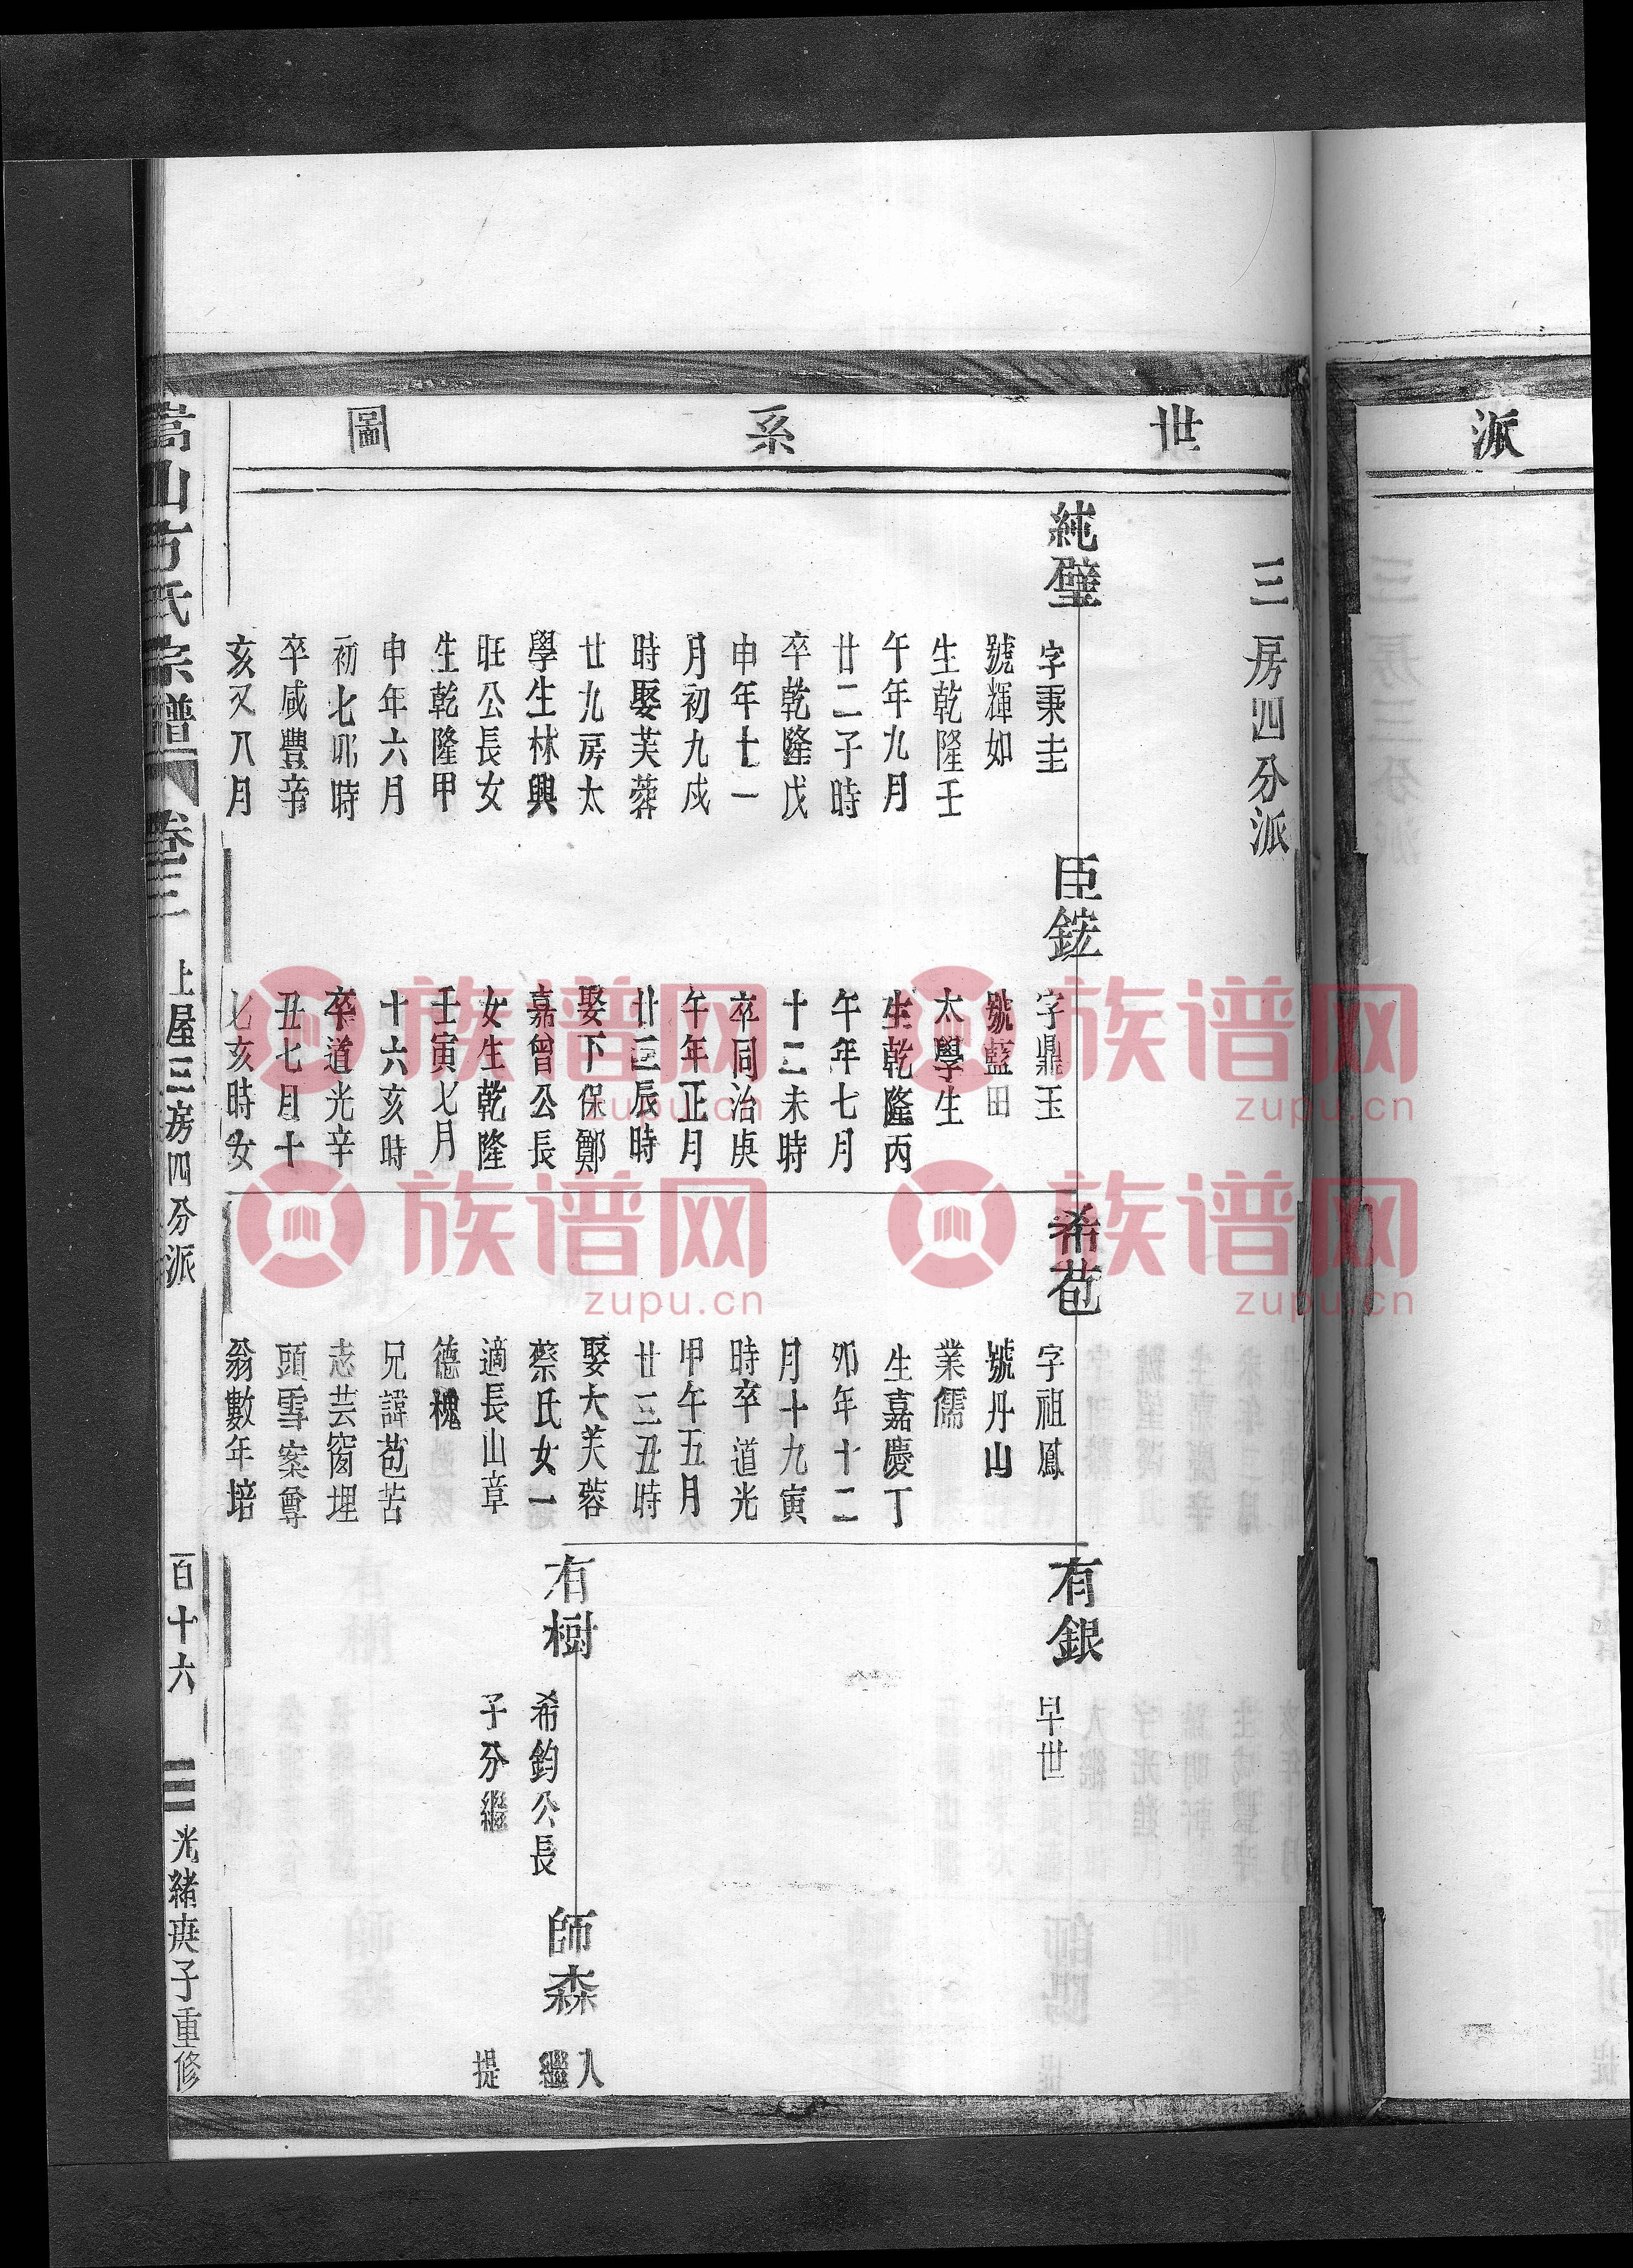 派
世系圖
三房四分派
純璧
字秉圭
號輝如
生乾隆壬
午年九月
廿二子時
卒乾隆戊
申年十一
月初九戌
時娶芙蓉
廿九房太
學生林興
旺公長女
生乾隆甲
申年六月
初七卯時
卒咸豐辛
亥又八月
臣鋐
字鼎玉
號藍田
太學生
生乾隆丙
午年七月
十二未時
卒同治庚
午年正月
廿三辰時
娶下保鄭
嘉曾公長
女生乾隆
壬寅七月
十六亥時
卒道光辛
丑七月十
七亥時女
希苞
字祖鳳
號丹山
業儒
生嘉慶丁
卯年十二
月十九寅
時卒道光
甲午五月
廿三丑時
娶大芙蓉
蔡氏女一
適長山章
德槐
兄諱苞苦
志芸窗埋
頭雪案尊
翁數年培
有銀
早世
有樹
希鈞公長
子分繼
師森
入
繼
提
嵩山方氏宗譜
卷三
上屋三房四分派
百十六
光緒庚子重修
族谱网
zupu.cn
族谱网
zupu.cn
族谱网
zupu.cn
族谱网
zupu.cn